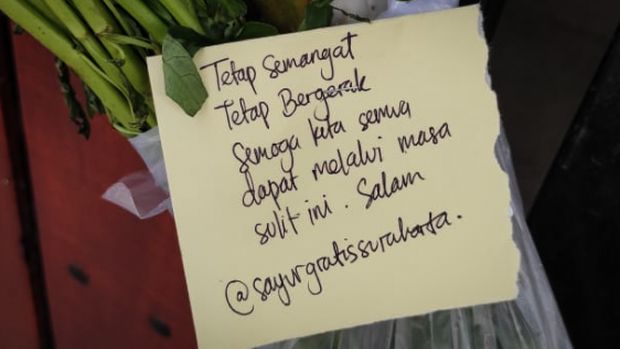 Tetap Semangat
Tetap Bergerak
Semoga kita semua
dapat melalui masa
sulit ini. Salam
@sayurgratissurakarta.